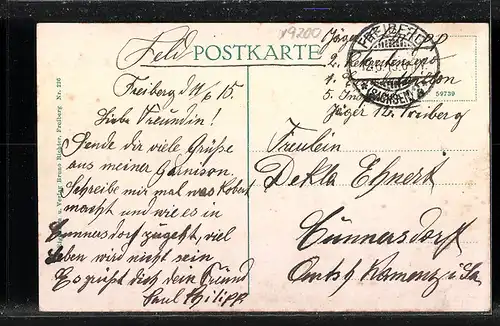 19200
Feld POSTKARTE
Freiberg d 11/6 15.
Liebe Freundin!
Sende dir viele Grüße
aus meiner Garnison.
Schreibe mir mal was Robert
macht und wie es in
Cunnersdorf zugeht, viel
Leben wird nicht sein
Es grüßt dich dein Freund
Paul Philipp
Verlag Bruno Richter, Freiberg Nr. 226
FREIBERG
(SACHSEN)
Jäger
2. Rekruten
5.
Jäger 12. Freiberg
59739
Fräulein
Dekla Ehnert
Cunnersdorf
Amtsh Kamenz i. Sa